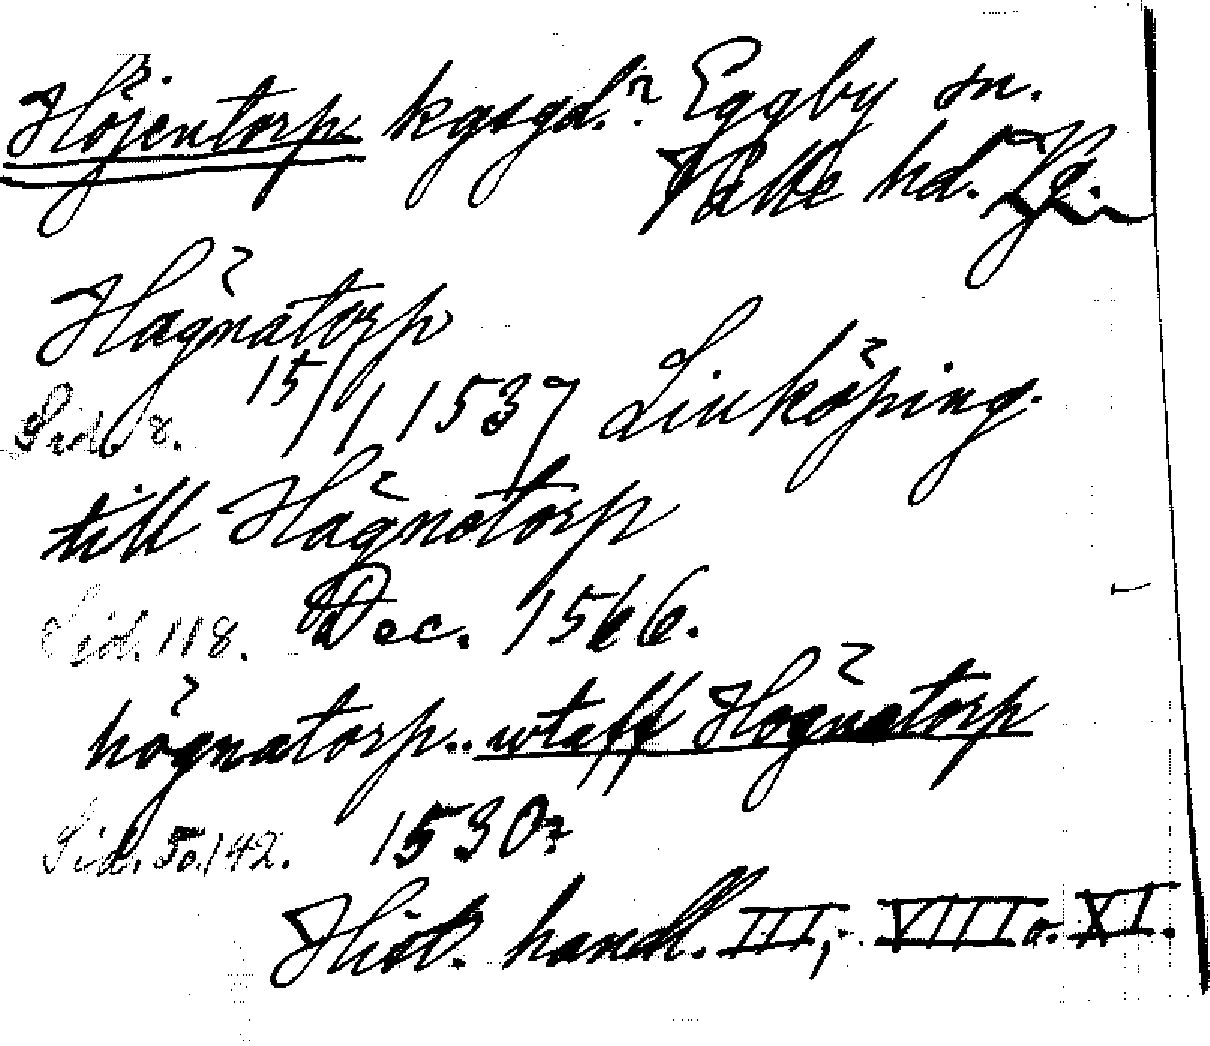 Höjentorp kgsgd. Eggby sn.
Valle hd. Vg.
Hägnatorp
Sid. 8. 15/1 1537 Linköping
till Hägnatorp
Sid. 118. Dec. 1566.
högnatorp.. wtaff Högnatorp
Sid. 5 o. 142. 1530
Hist. handl. III, VIII o. XI.